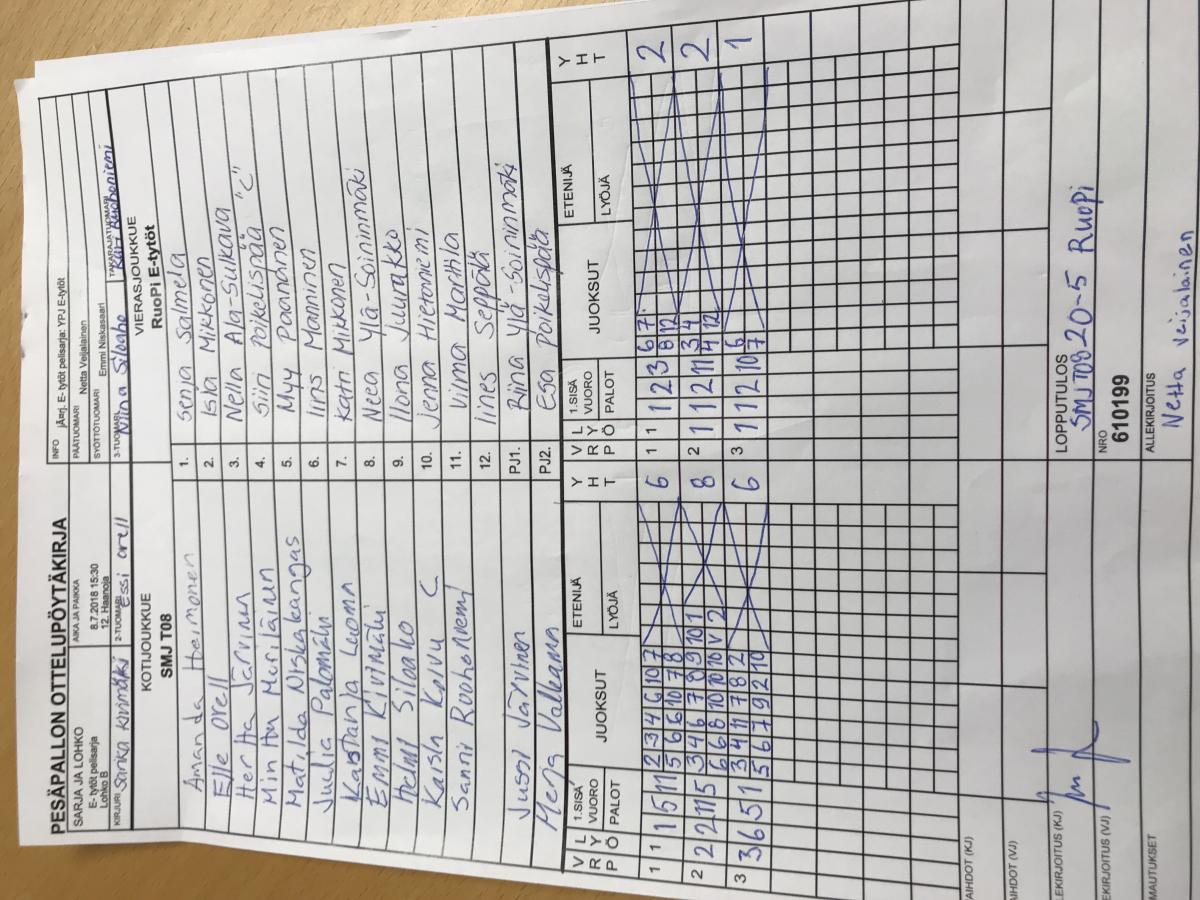 PESÄPALLON OTTELUPÖYTÄKIRJA
SARJA JA LOHKO
E- tytöt pelisarja
Lohko B
AIKA JA PAIKKA
8.7.2018 15:30
12. Haanoja
INFO
E- tytöt pelisarja: YPJ E-tytöt
PÄÄTUOMARI Netta Veijalainen
SYÖTTÖTUOMARI Emmi Niskasaari
KIRJURI Sanka Kivimäki
2-TUOMARI Essi Orell
3-TUOMARI Niina Siloaho
TAKARAJATUOMARI Kari Ruohoniemi
KOTIJOUKKUE
SMJ T08
VIERASJOUKKUE
RuoPi E-tytöt
Amanda Hoermonen 1. Senja Salmela
Elle Orell 2. Isla Mikkonen
Hertta Järvinen 3. Nella Ala-Sulkava
Minttu Meriläinen 4. Siiri Poikelispää "C"
Matilda Niskakangas 5. Myy Paananen
Juulia Palomäki 6. Iiris Manninen
Kastanja Luoma 7. Katri Mikkonen
Emmi Kivimäki 8. Neea Ylä-Soininmäki
Helmi Siloaho 9. Ilona Juurakko
Kaisla Koivu C 10. Jenna Hietaniemi
Sanni Ruohoniemi 11. Viima Marttila
12. Iines Seppälä
Jussi Järvinen PJ1. Riina Ylä-Soininmäki
Merja Valkama PJ2. Esa Poikelispää
V R P L Y Ö 1.SISÄ VUORO PALOT JUOKSUT ETENIJÄ LYÖJÄ Y H T V R P L Y Ö 1.SISÄ VUORO PALOT JUOKSUT ETENIJÄ LYÖJÄ Y H T
1 1 1 5 11 2 3 4 6 10 7 6 1 1 1 2 3 6 7 2
5 6 6 10 7 8 8 12
2 2 2 11 5 3 4 6 7 8 9 10 1 8 2 1 1 2 11 3 4 2
6 6 8 10 10 10 V 2 4 12
3 3 6 5 1 3 4 11 7 8 2 6 3 1 1 2 10 6 1
5 6 7 9 2 10 7
AIHDOT (KJ)
AIHDOT (VJ)
LEKIRJOITUS (KJ)
LOPPUTULOS
SMJ T08 20-5 RuoPi
EKIRJOITUS (VJ)
NRO
610199
MAUTUKSET
ALLEKIRJOITUS
Netta Veijalainen